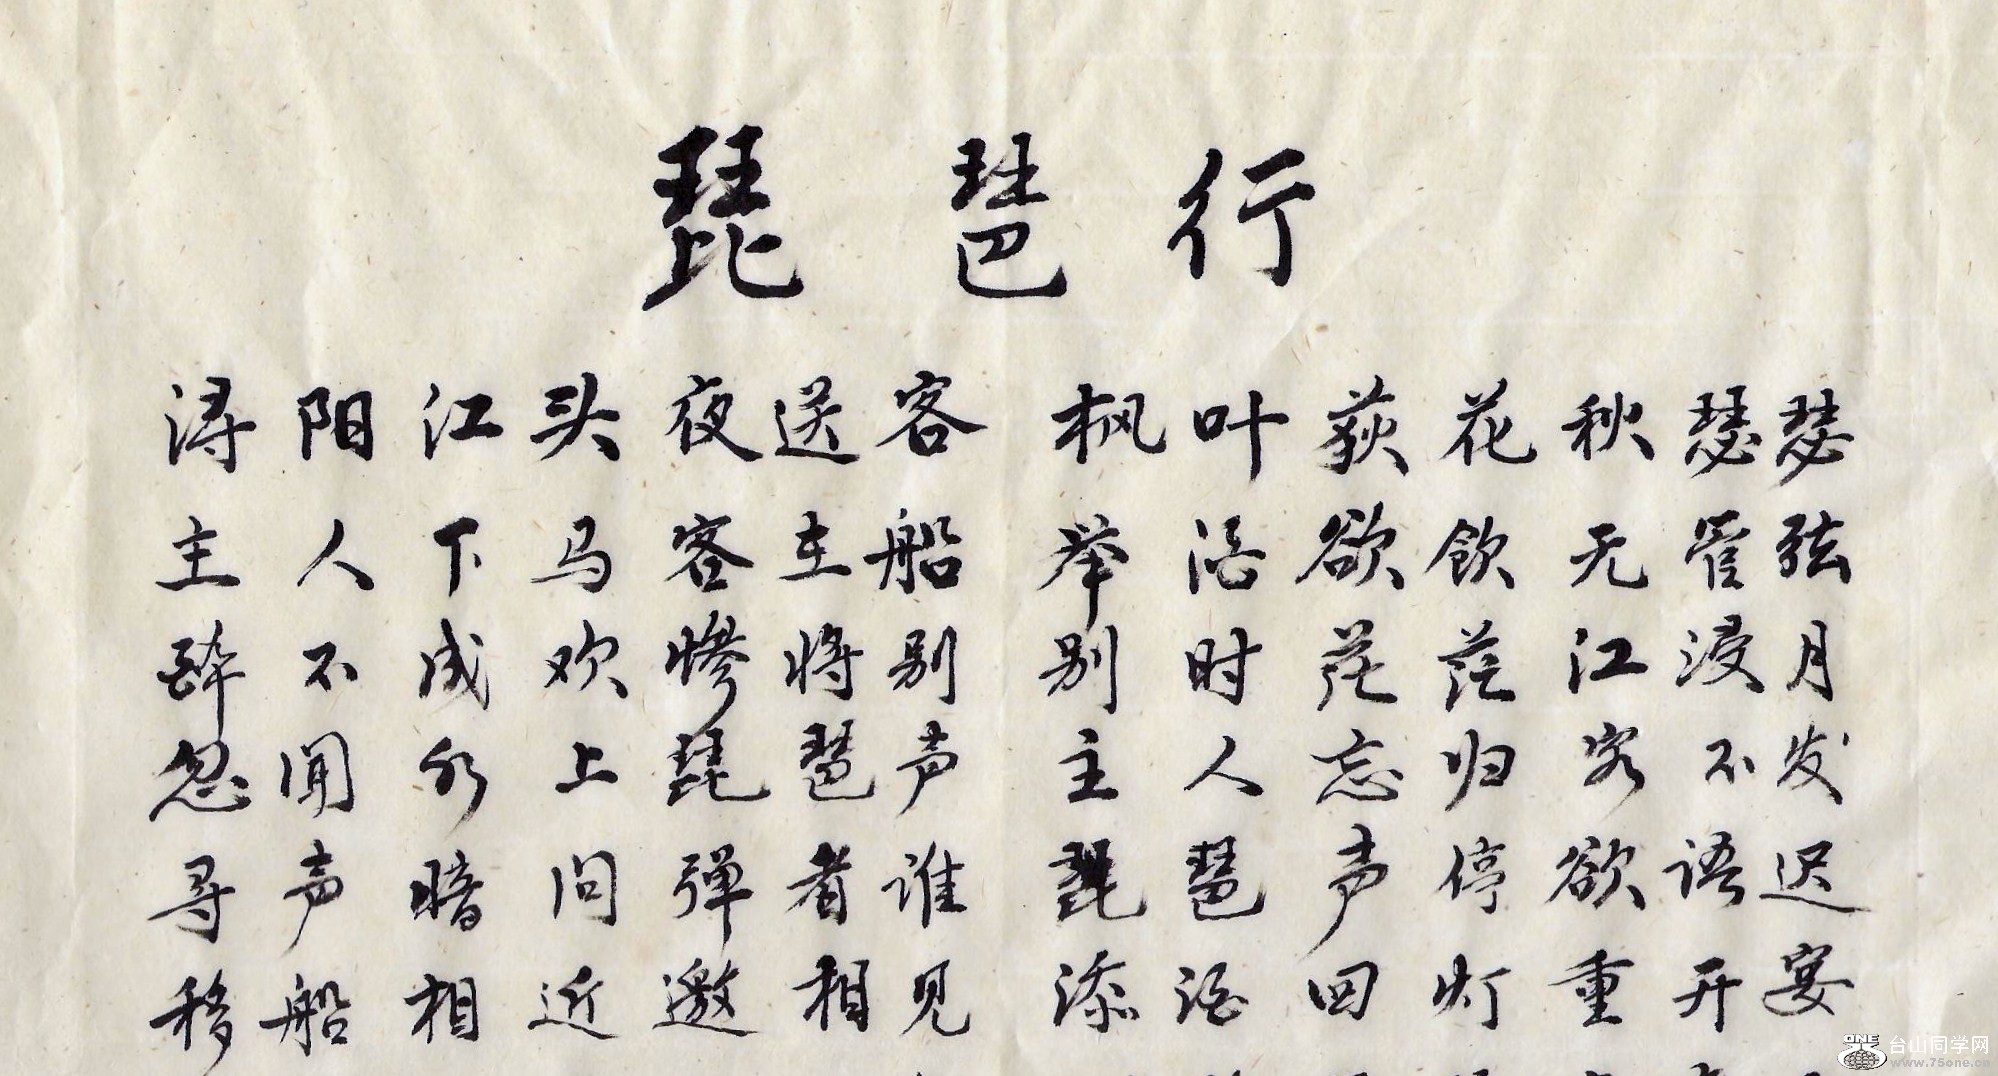 琵琶行
浔阳江头夜送客 枫叶荻花秋瑟瑟
主人下马客在船 举酒欲饮无管弦
醉不成欢惨将别 别时茫茫江浸月
忽闻水上琵琶声 主人忘归客不发
寻声暗问弹者谁 琵琶声停欲语迟
移船相近邀相见 添酒回灯重开宴
ONE 台山同学网
www.75one.cn